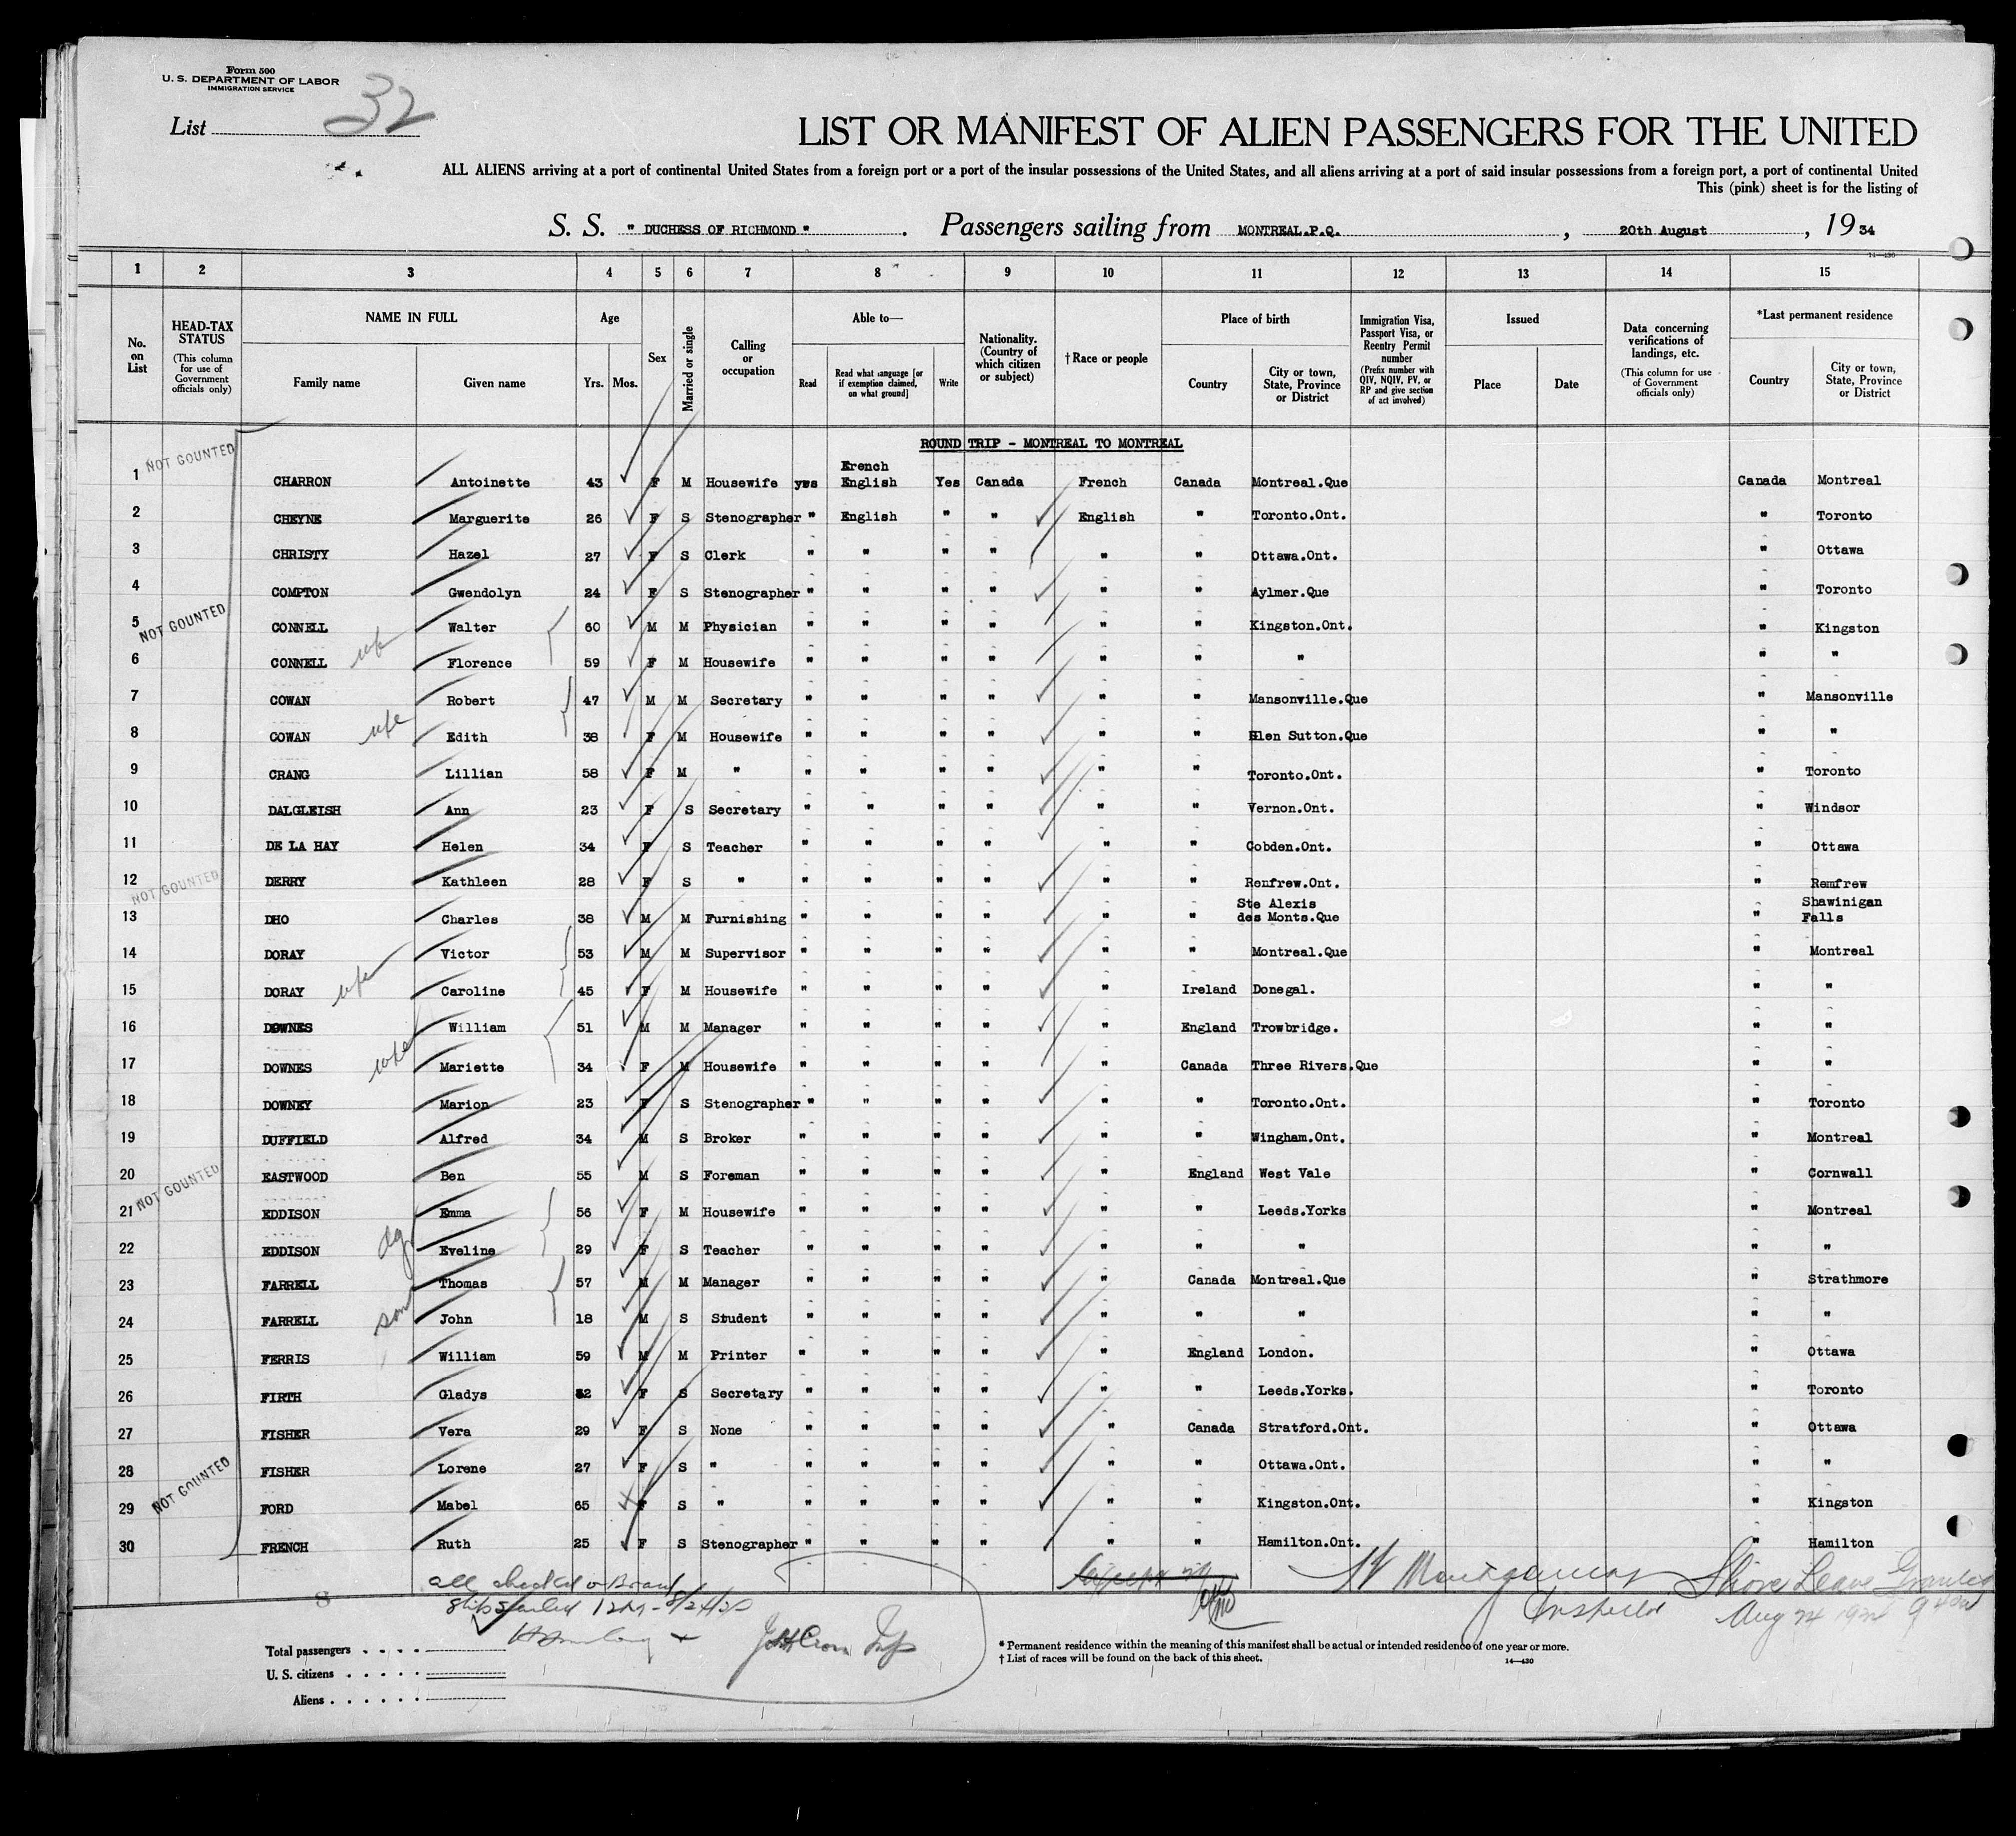 Form 500
U. S. DEPARTMENT OF LABOR
IMMIGRATION SERVICE
List 32
LIST OR MANIFEST OF ALIEN PASSENGERS FOR THE UNITED
ALL ALIENS arriving at a port of continental United States from a foreign port or a port of the insular possessions of the United States, and all aliens arriving at a port of said insular possessions from a foreign port, a port of continental United
This (pink) sheet is for the listing of
S. S. " DUCHESS OF RICHMOND ". Passengers sailing from MONTREAL.P.Q. , 20th August , 19 34
14—430
1 2 3 4 5 6 7 8 9 10 11 12 13 14 15
No. on List
HEAD-TAX STATUS (This column for use of Government officials only)
NAME IN FULL Family name Given name
Age Yrs. Mos.
Sex
Married or single
Calling or occupation
Able to— Read Read what language [or if exemption claimed, on what ground] Write
Nationality. (Country of which citizen or subject)
†Race or people
Place of birth Country City or town, State, Province or District
Immigration Visa, Passport Visa, or Reentry Permit number (Prefix number with QIV, NQIV, PV, or RP and give section of act involved)
Issued Place Date
Data concerning verifications of landings, etc. (This column for use of Government officials only)
*Last permanent residence Country City or town, State, Province or District
ROUND TRIP - MONTREAL TO MONTREAL
NOT COUNTED
French
1 CHARRON Antoinette 43 F M Housewife yes English Yes Canada French Canada Montreal.Que Canada Montreal
2 CHEYNE Marguerite 26 F S Stenographer " English " " English " Toronto.Ont. " Toronto
3 CHRISTY Hazel 27 F S Clerk " " " " " " Ottawa.Ont. " Ottawa
4 COMPTON Gwendolyn 24 F S Stenographer " " " " " " Aylmer.Que " Toronto
NOT COUNTED
5 CONNELL Walter 60 M M Physician " " " " " " Kingston.Ont. " Kingston
6 CONNELL wfe Florence 59 F M Housewife " " " " " " " " "
7 COWAN Robert 47 M M Secretary " " " " " " Mansonville.Que " Mansonville
8 COWAN wfe Edith 38 F M Housewife " " " " " " Glen Sutton.Que " "
9 CRANG Lillian 58 F M " " " " " " " Toronto.Ont. " Toronto
10 DALGLEISH Ann 23 F S Secretary " " " " " " Vernon.Ont. " Windsor
11 DE LA HAY Helen 34 F S Teacher " " " " " " Cobden.Ont. " Ottawa
12 DERRY Kathleen 28 F S " " " " " " " Renfrew.Ont. " Remfrew
NOT COUNTED
Ste Alexis Shawinigan
13 DHO Charles 38 M M Furnishing " " " " " " des Monts.Que " Falls
14 DORAY Victor 53 M M Supervisor " " " " " " Montreal.Que " Montreal
15 DORAY wfe Caroline 45 F M Housewife " " " " " Ireland Donegal. " "
16 DOWNES William 51 M M Manager " " " " " England Trowbridge. " "
17 DOWNES wfe Mariette 34 F M Housewife " " " " " Canada Three Rivers.Que " "
18 DOWNEY Marion 23 F S Stenographer " " " " " " Toronto.Ont. " Toronto
19 DUFFIELD Alfred 34 M S Broker " " " " " " Wingham.Ont. " Montreal
20 EASTWOOD Ben 55 M S Foreman " " " " " England West Vale " Cornwall
NOT COUNTED
21 EDDISON Emma 56 F M Housewife " " " " " " Leeds.Yorks " Montreal
22 EDDISON dg Eveline 29 F S Teacher " " " " " " " " "
23 FARRELL Thomas 57 M M Manager " " " " " Canada Montreal.Que " Strathmore
24 FARRELL son John 18 M S Student " " " " " " " " "
25 FERRIS William 59 M M Printer " " " " " England London. " Ottawa
26 FIRTH Gladys 32 F S Secretary " " " " " " Leeds.Yorks. " Toronto
27 FISHER Vera 29 F S None " " " " " Canada Stratford.Ont. " Ottawa
28 FISHER Lorene 27 F S " " " " " " " Ottawa.Ont. " "
NOT COUNTED
29 FORD Mabel 65 F S " " " " " " " Kingston.Ont. " Kingston
30 FRENCH Ruth 25 F S Stenographer " " " " " " Hamilton.Ont. " Hamilton
all checked on Board
Ship sailed
Montgomery
Inspector
Shore Leave Granted
Aug 24 1934
Total passengers
U. S. citizens
Aliens
* Permanent residence within the meaning of this manifest shall be actual or intended residence of one year or more.
† List of races will be found on the back of this sheet.
14—430